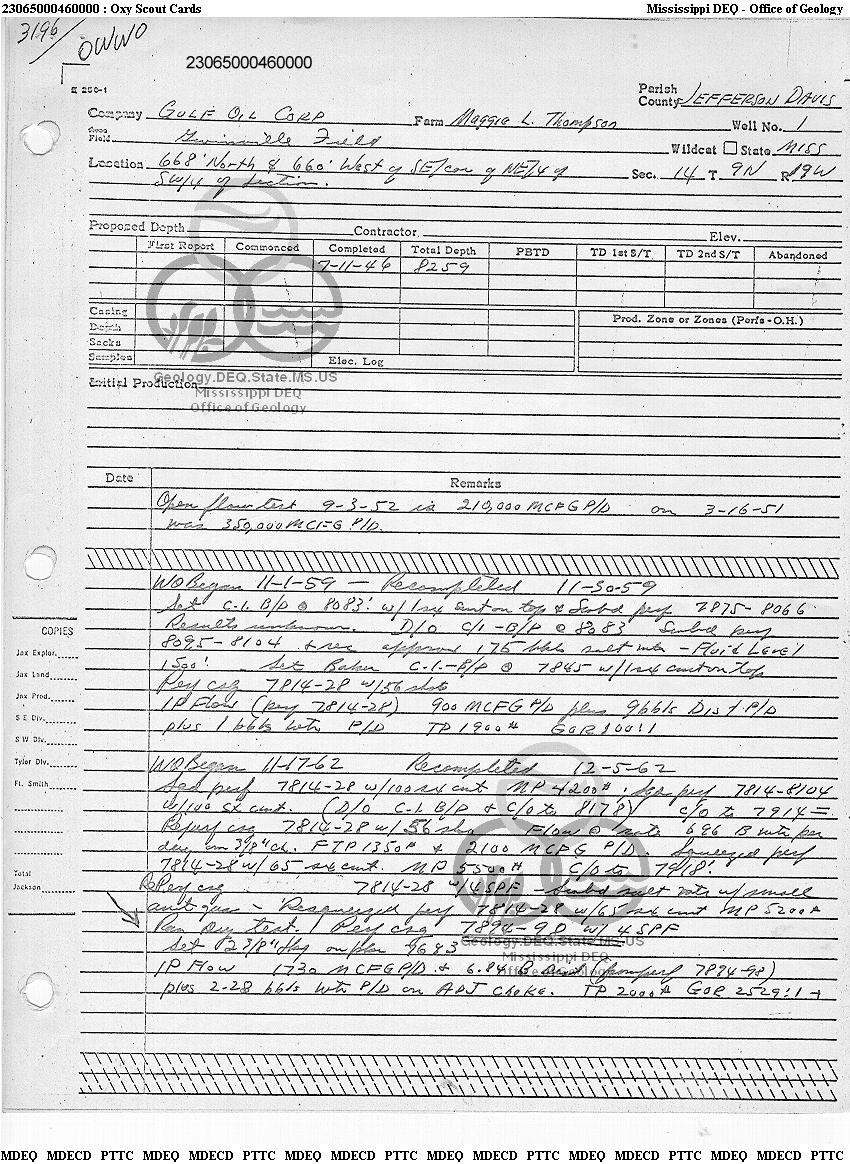 23065000460000 : Oxy Scout Cards
Mississippi DEQ - Office of Geology
3196
OWWO
23065000460000
E 256-1
Parish
County JEFFERSON DAVIS
Company GULF OIL CORP Farm Maggie L. Thompson Well No. 1
Area
Field Gwinville Field Wildcat State MISS
Location 668' North & 660' West of SE/cor of NE/4 of Sec. 14 T 9N R 19W
SW/4 of Section.
Proposed Depth Contractor Elev.
First Report Commenced Completed Total Depth PBTD TD 1st S/T TD 2nd S/T Abandoned
7-11-46 8259
Casing Prod. Zone or Zones (Perfs - O.H.)
Depth
Sacks
Samples Elec. Log
Geology.DEQ.State.MS.US
Initial Production
Mississippi DEQ
Office of Geology
Date Remarks
Open flow test 9-3-52 is 210,000 MCFG P/D on 3-16-51
was 350,000 MCFG P/D.
WO Began 11-1-59 - Recompleted 11-30-59
Set C.I. B/P @ 8083' w/1 sx cmt on top & Swbd perf 7875-8066
Results unknown. D/O C/I-B/P @ 8083 Swbd perf
8095-8104 & rec approx 175 bbls salt wtr - Fluid Level
1500'. Set Baker C.I.-B/P @ 7845 w/1 sx cmt on top
Perf csg 7814-28 w/56 shots
IP Flow (perf 7814-28) 900 MCFG P/D plus 9 bbls Dist P/D
plus 1 bbls wtr P/D TP 1900# GOR 100:1
WO Began 11-17-62 Recompleted 12-5-62
Sqd perf 7814-28 w/100 sx cmt MP 4200#. Sqd perf 7814-8104
w/100 sx cmt. (D/O C.I. B/P & C/O to 8178) C/O to 7914
Reperf csg 7814-28 w/56 shots Flow @ rate 696 B wtr per
day on 3/8" ch. FTP 1350# & 2100 MCFG P/D Squeezed perf
7814-28 w/65 sx cmt. MP 5500# C/O to 7918'.
RePerf csg 7814-28 w/4SPF - Swbd salt wtr w/ small
amt gas - Resqueezed perf 7814-28 w/65 sx cmt MP 5200#
Ran Dry test. Perf csg 7894-98 w/4SPF
Set 2 3/8" tbg on pkr
IP Flow 1730 MCFG P/D & 6.84 B Dist (from perf 7894-98)
plus 2.28 bbls wtr P/D on ADJ choke. TP 2000# GOR 2529:1
Geology.DEQ.State.MS.US
Mississippi DEQ
Office of Geology
COPIES
Jax Explor.
Jax Land
Jax Prod.
S E Div.
S W Div.
Tyler Div.
Ft. Smith
Total
Jackson
MDEQ MDECD PTTC MDEQ MDECD PTTC MDEQ MDECD PTTC MDEQ MDECD PTTC MDEQ MDECD PTTC MDEQ MDECD PTTC